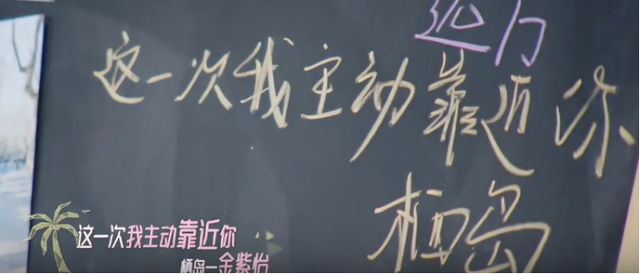 远方
这一次我主动靠近你
栖岛
这一次我主动靠近你
栖岛—金紫怡